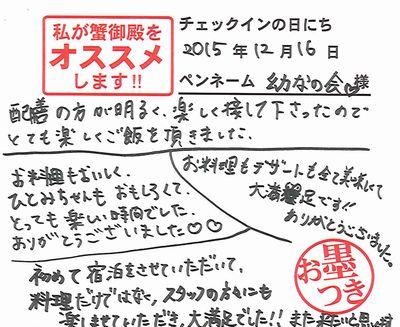 私が蟹御殿を
オススメ
します!!
チェックインの日にち
2015年12月16日
ペンネーム 幼なの会 様
配膳の方が明るく、楽しく接して下さったので
とても楽しくご飯を頂きました。
お料理もおいしく、
ひとみちゃんも おもしろくて、
とっても楽しい時間でした。
ありがとうございました♡♡
お料理もデザートも全て美味しくて
大満足です!!
ありがとうございました。
初めて宿泊をさせていただいて、
料理だけではなく、スタッフの方々にも
楽しませていただき、大満足でした!! また来たいと思います
お墨つき